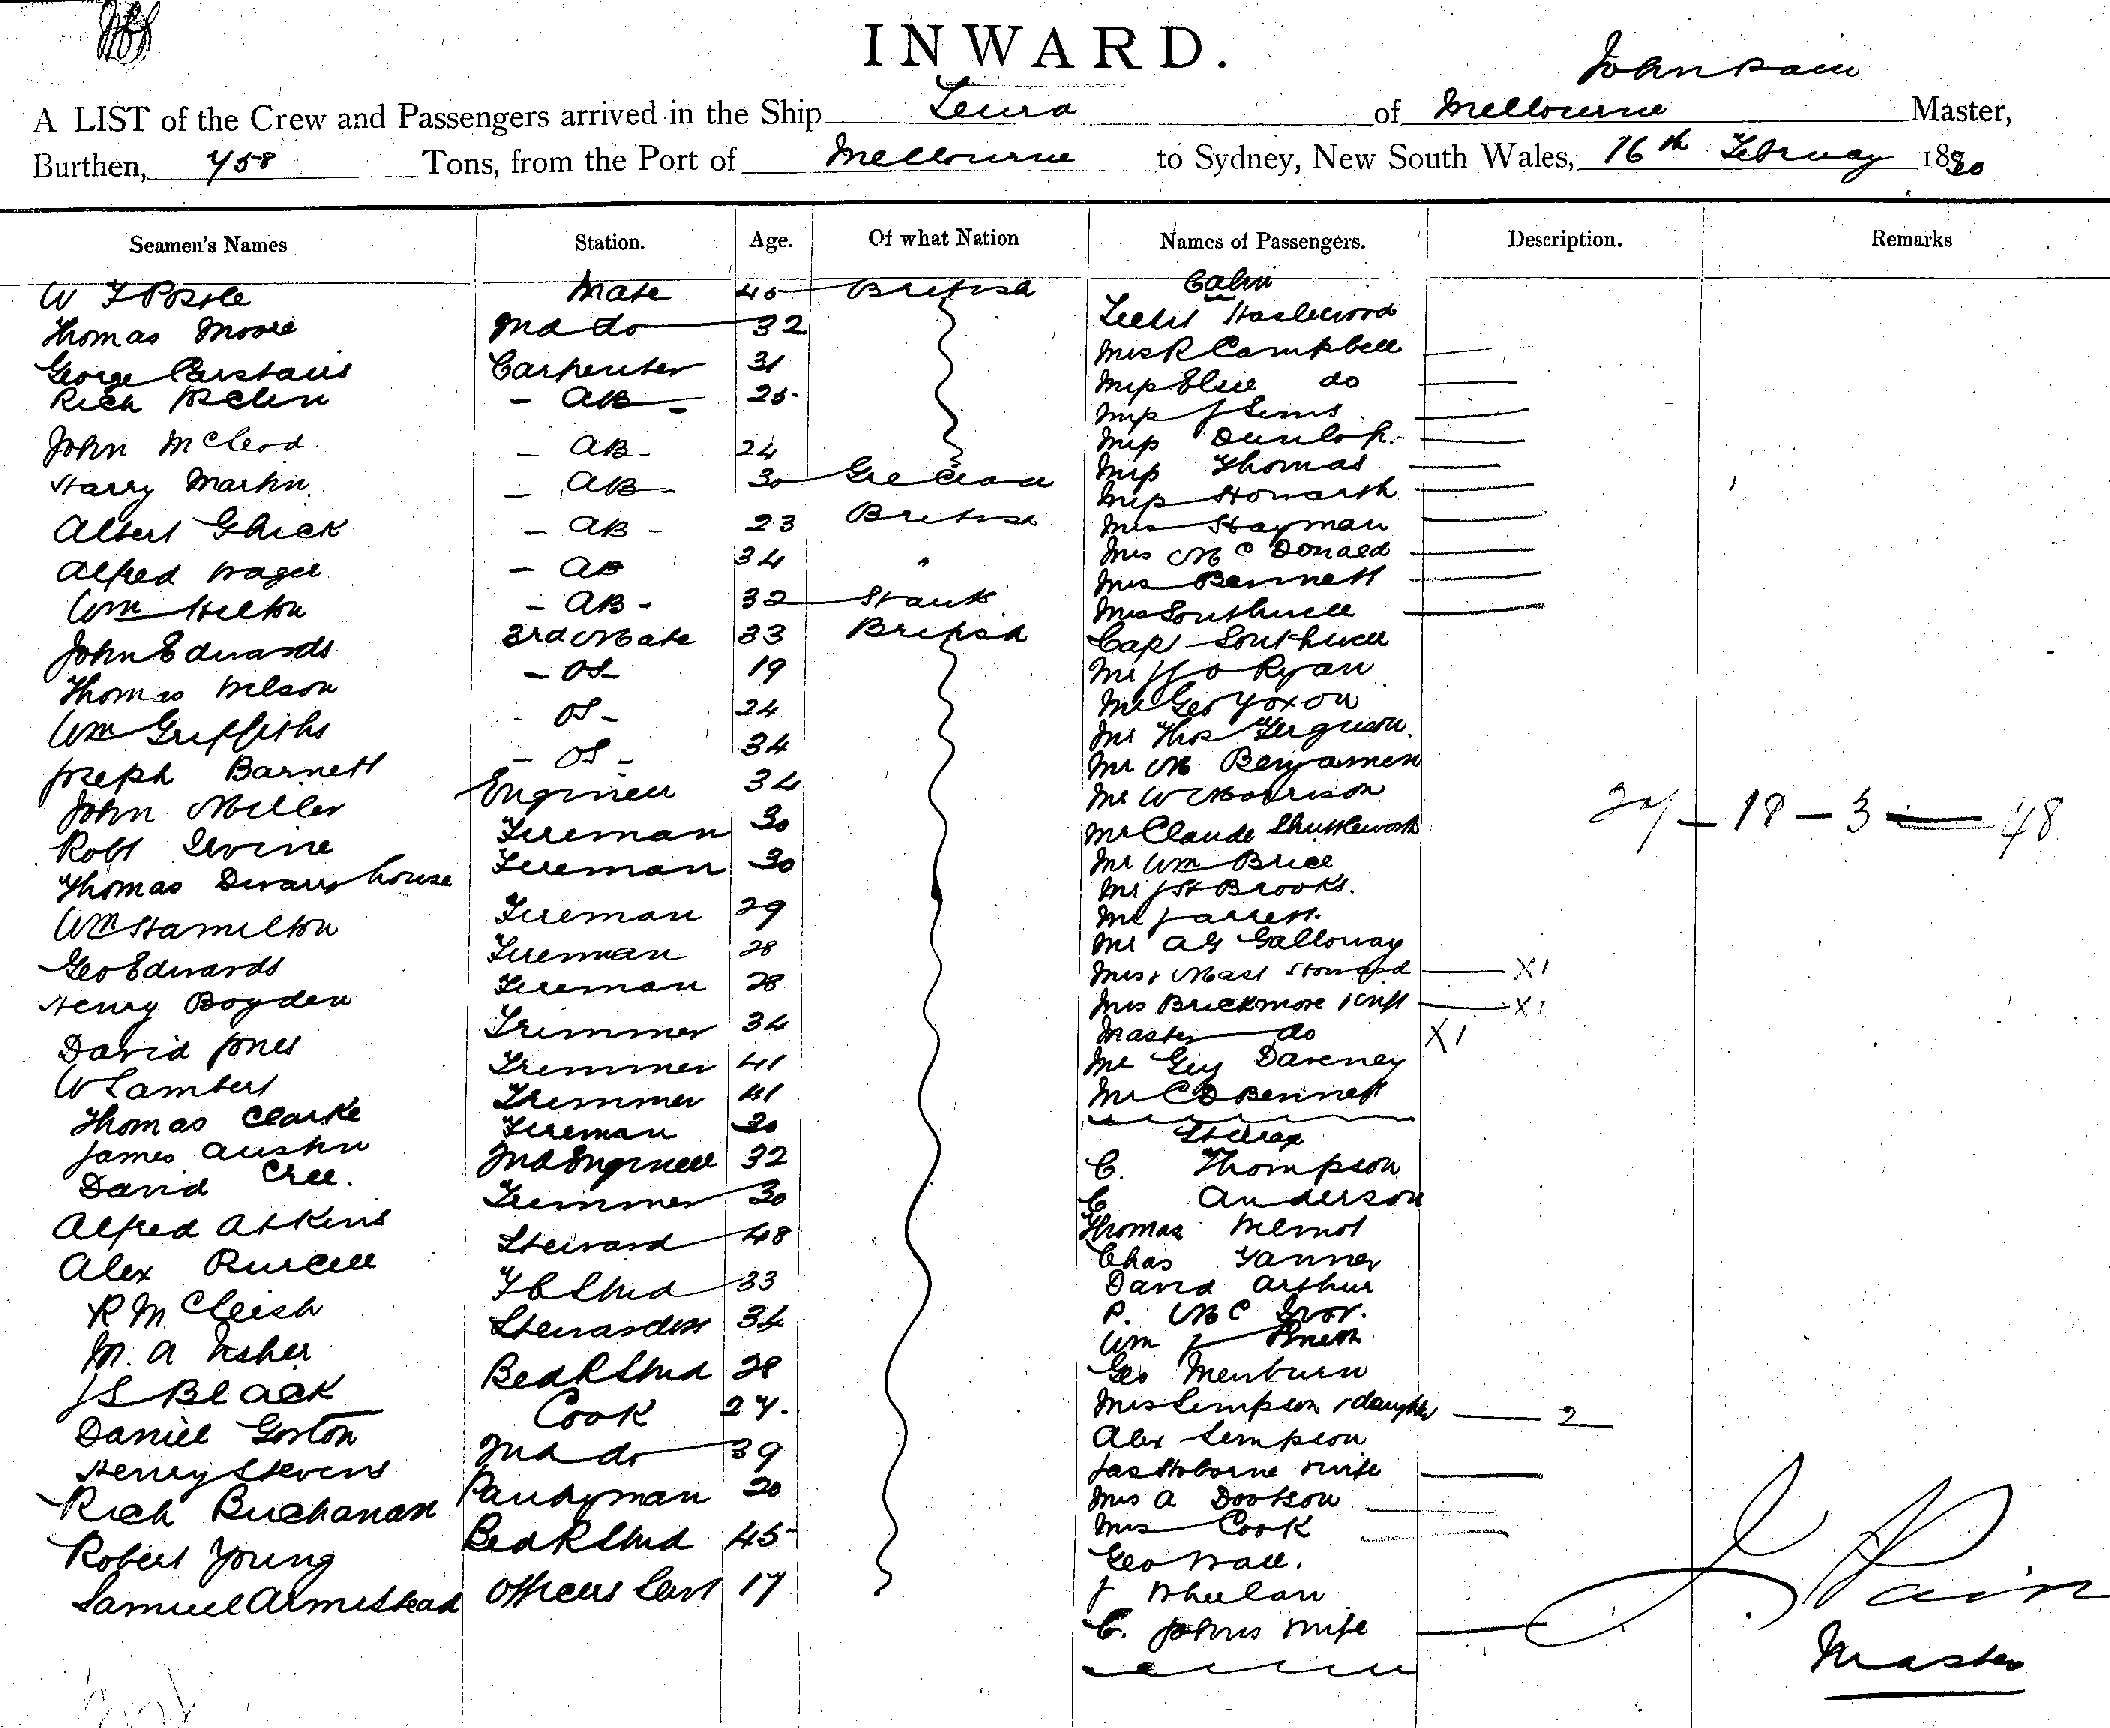 INWARD.
John Pain
A LIST of the Crew and Passengers arrived in the Ship Leura of Melbourne Master,
Burthen, 758 Tons, from the Port of Melbourne to Sydney, New South Wales, 16th February 1890
Seamen's Names Station. Age. Of what Nation Names of Passengers. Description. Remarks
Cabin
W Mate 45 British
Thomas Moore 2nd do 32 Haslewood
George Carstairs Carpenter 31 Mrs R Campbell
Rich AB 25 Miss Elsie do
Miss J Sims
John McLeod AB 24 Miss Dunlop
Harry Martin AB 30 Grecian Miss Thomas
Miss Howarth
Albert Ghick AB 23 British Mrs Hayman
Alfred Wager AB 34 " Mrs McDonald
Mrs Bennett
Wm Hilton AB 32 Mrs Southwell
John Edwards 3rd Mate 33 British Capt Southwell
Thomas Nelson OS 19 Mr Ryan
Wm Griffiths OS 24 Mr Geo Yoxon
Joseph Barnett OS 34 Mr Thos Ferguson
Mr M Benjamin
John Miller Engineer 34 Mr W C Morrison
20/ — 18 — 3 — 48
Robt Irvine Fireman 30 Mr Claude Shuttleworth
Thomas house Fireman 30 Mr Wm Brice
Mr J H Brooks.
Wm Hamilton Fireman 29 Mr Jarrett
Geo Edwards Fireman 28 Mr A G Galloway
Henry Boyden Fireman 28 Mrs & Mast Howard X1
Mrs Brickmore & Inft X1
David Jones Trimmer 34 Master do X1
W Lambert Trimmer 41 Mr Guy Daveney
Thomas Clarke Trimmer 41 Mr C D Bennett
James Austin Fireman 30 Steerage
David Cree. 2nd Engineer 32 C. Thompson
Alfred Atkins Trimmer 30 C Anderson
Thomas
Alex Purcell Steward 48 Chas Tanner
David Arthur
R McCleish F C Stwd 33 P. McIvor.
M. A Fisher Stewardess 34 Wm J
J S Black Bed R Stwd 28 Geo Menburn
Daniel Gorton Cook 27. Mrs Simpson & daughter 2
Alex Simpson
Henry Stevens 2nd do 39 Jas Hoborne & wife
Rich Buchanan Pantryman 20 Mrs A Dootson
Mrs Cook
Robert Young Bed R Stwd 45 Geo Wall.
Samuel Armistead Officers Servt 17 J Whelan
C. Johns & wife
J Pain
Master